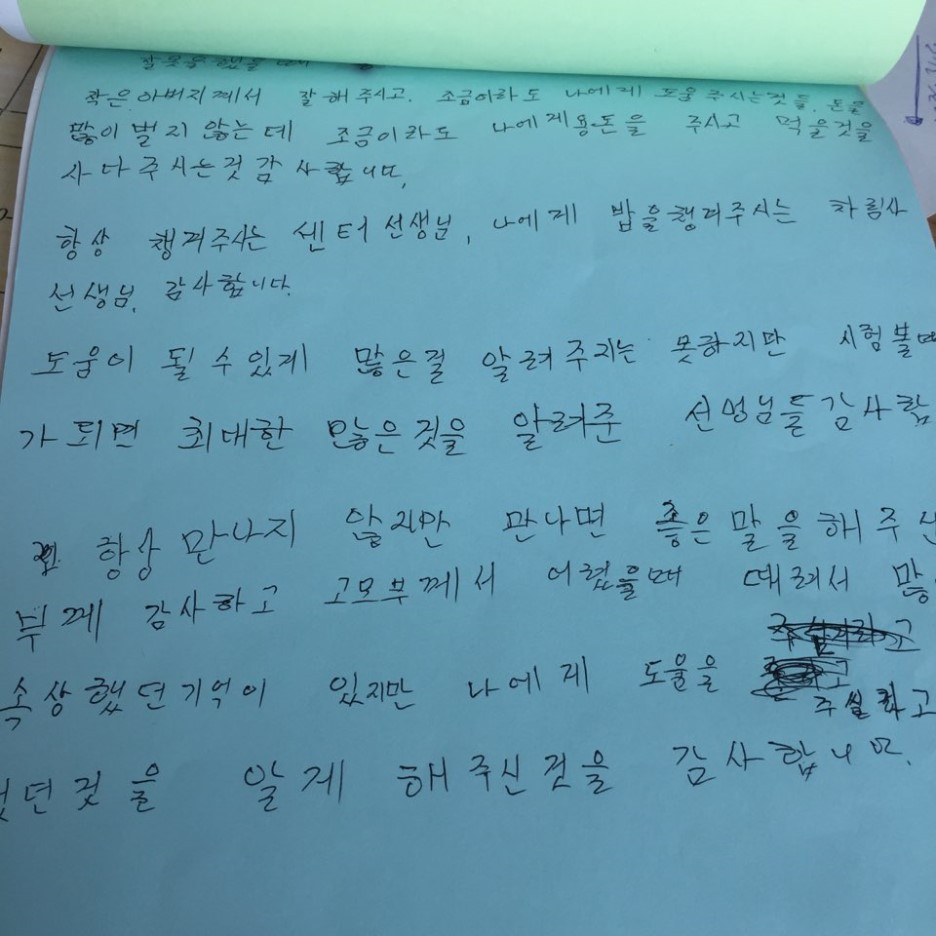 잘못을 했을 때
작은아버지께서 잘해주시고. 조금이라도 나에게 도움 주시는것들, 돈을
많이 벌지 않는데 조금이라도 나에게용돈을 주시고 먹을것을
사다주시는것감사합니다.
항상 챙겨주시는 센터선생님, 나에게 밥을챙겨주시는
선생님, 감사합니다.
도움이 될수있게 많은걸 알려주지는 못하지만 시험볼때
가 되면 최대한 많은것을 알려준 선생님들감사합
항상만나지 않지만 만나면 좋은말을해주신
부께 감사하고 고모부께서 어렸을때 때려서 많
속상했던기억이 있지만 나에게 도움을
주실라고
던것을 알게 해주신것을 감사합니다.